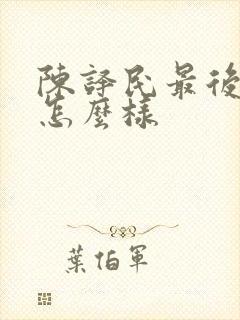 陳譯民最後
怎麼樣
葉伯軍